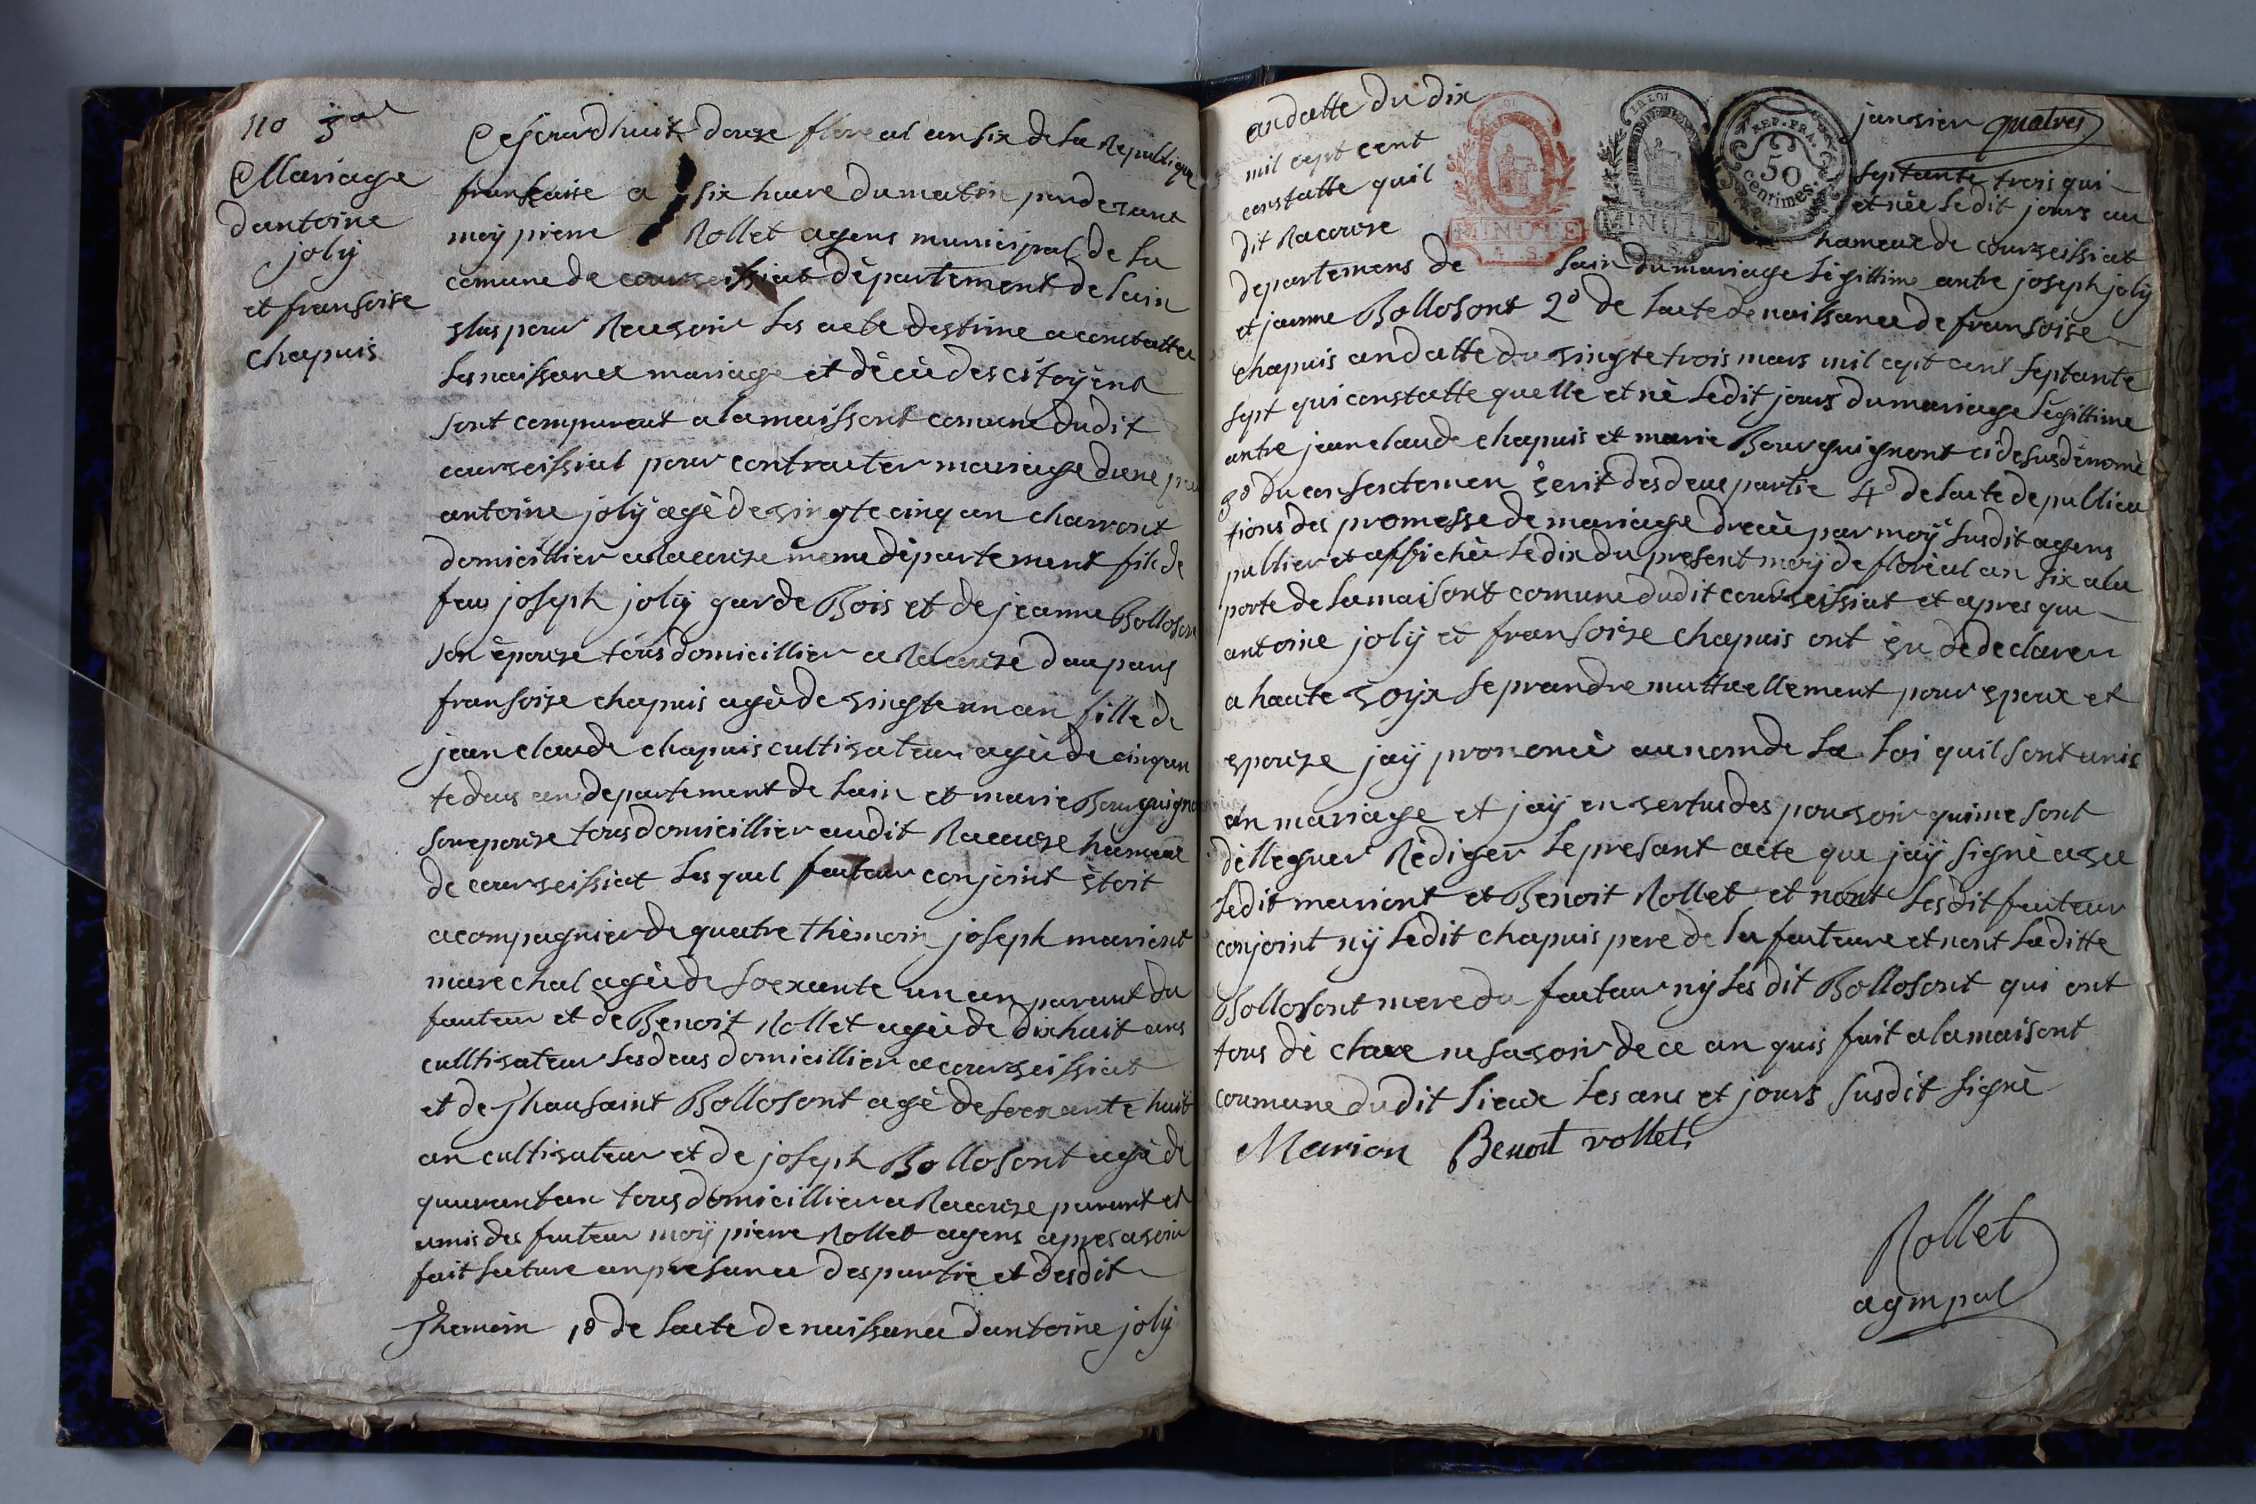 no 3a
Mariage
dantoine
joly
et fransoise
chapuis
Cejourdhuit douse floreal an six de la Republique
fransaise a six heure du matin pardevant
moy pierre Rollet agens municipal de la
comune de courseissiat département de lain
elus pour Recevoir les acte destine a constatter
les naissance mariage et décé des citoyens
sont compareut a la maissont comune du dit
courseissiat pour contracter mariage dune
antoine joly agé de vingte cinq an charront
domicillier a lacouze meme département fils de
feu joseph joly garde Bois et de jeanne Bolloson
son épouze tous domicillier a Racouze dau pars
fransoise chapuis agé de vingte un an fille de
jean claude chapuis cultivateur agé de cinquan
te deus an departement de lain et marie Bourguigno
son epouze tous domicillier au dit Racouze hameux
de courseissiat lesquel futeur conjoint étoit
acompagnier de quatre thémoin joseph mariont
marechal agé de soexante un an parant du
futeur et de Benoit Rollet agé de dix huit ans
culltivateur les deus domicillier a courseissiat
et de Bollosont agé de soexante huit
an cultivateur et de joseph Bollosont agé de
quarant an tous domicillier a Racouze parant et
amis des futeur moy pierre Rollet agens apres avoir
fait lecture an presance des partie et desdit
themoin 1o de lacte de naissance dantoine joly
an datte du dix jansier quatres
mil cept cent septante trois qui
constatte quil et née ledit jours au
dit Racouze hameux de courseissiat
departemens de lain du mariage légittime antre joseph joly
et janne Bollosont 2o de lacte de naissance de fransoise
chapuis an datte du vingte trois mars mil cept cent septante
sept qui constatte quelle et né ledit jours du mariage legittime
antre jean claude chapuis et marie Bourguignont ci desus dénomé
3o du consentemen écrit des deux partie 4o de lacte de publica
tions des promesse de mariage drecé par moy susdit agens
publier et affiché le dix du present moy de floréal an six a la
porte de la maisont comune dudit courseissiat et apres que
antoine joly et fransoise chapuis ont éu de declarer
a haute voyx se prandre muttuellement pour epoux et
epouze jay prononcé au nom de la loi quil sont unis
an mariage et jay en vertus des pouvoir qui me sont
délleguer Rédiger le presant acte que jay signé avec
ledit mariont et Benoit Rollet et nont lesdit futeur
conjoint ny ledit chapuis pere de la futeure et nont laditte
Bollosont mere du futeur ny les dit Bollosont qui ont
tous dé claré ne savoir de ce an quis fait a la maisont
coumune dudit lieux les ans et jours susdit signé
Marion Benoit rollet
Rollet
ag mpal
LA LOI
MINUTE
4 S
LA LOI
MINUTE
S
REP. FRA.
50
centimes